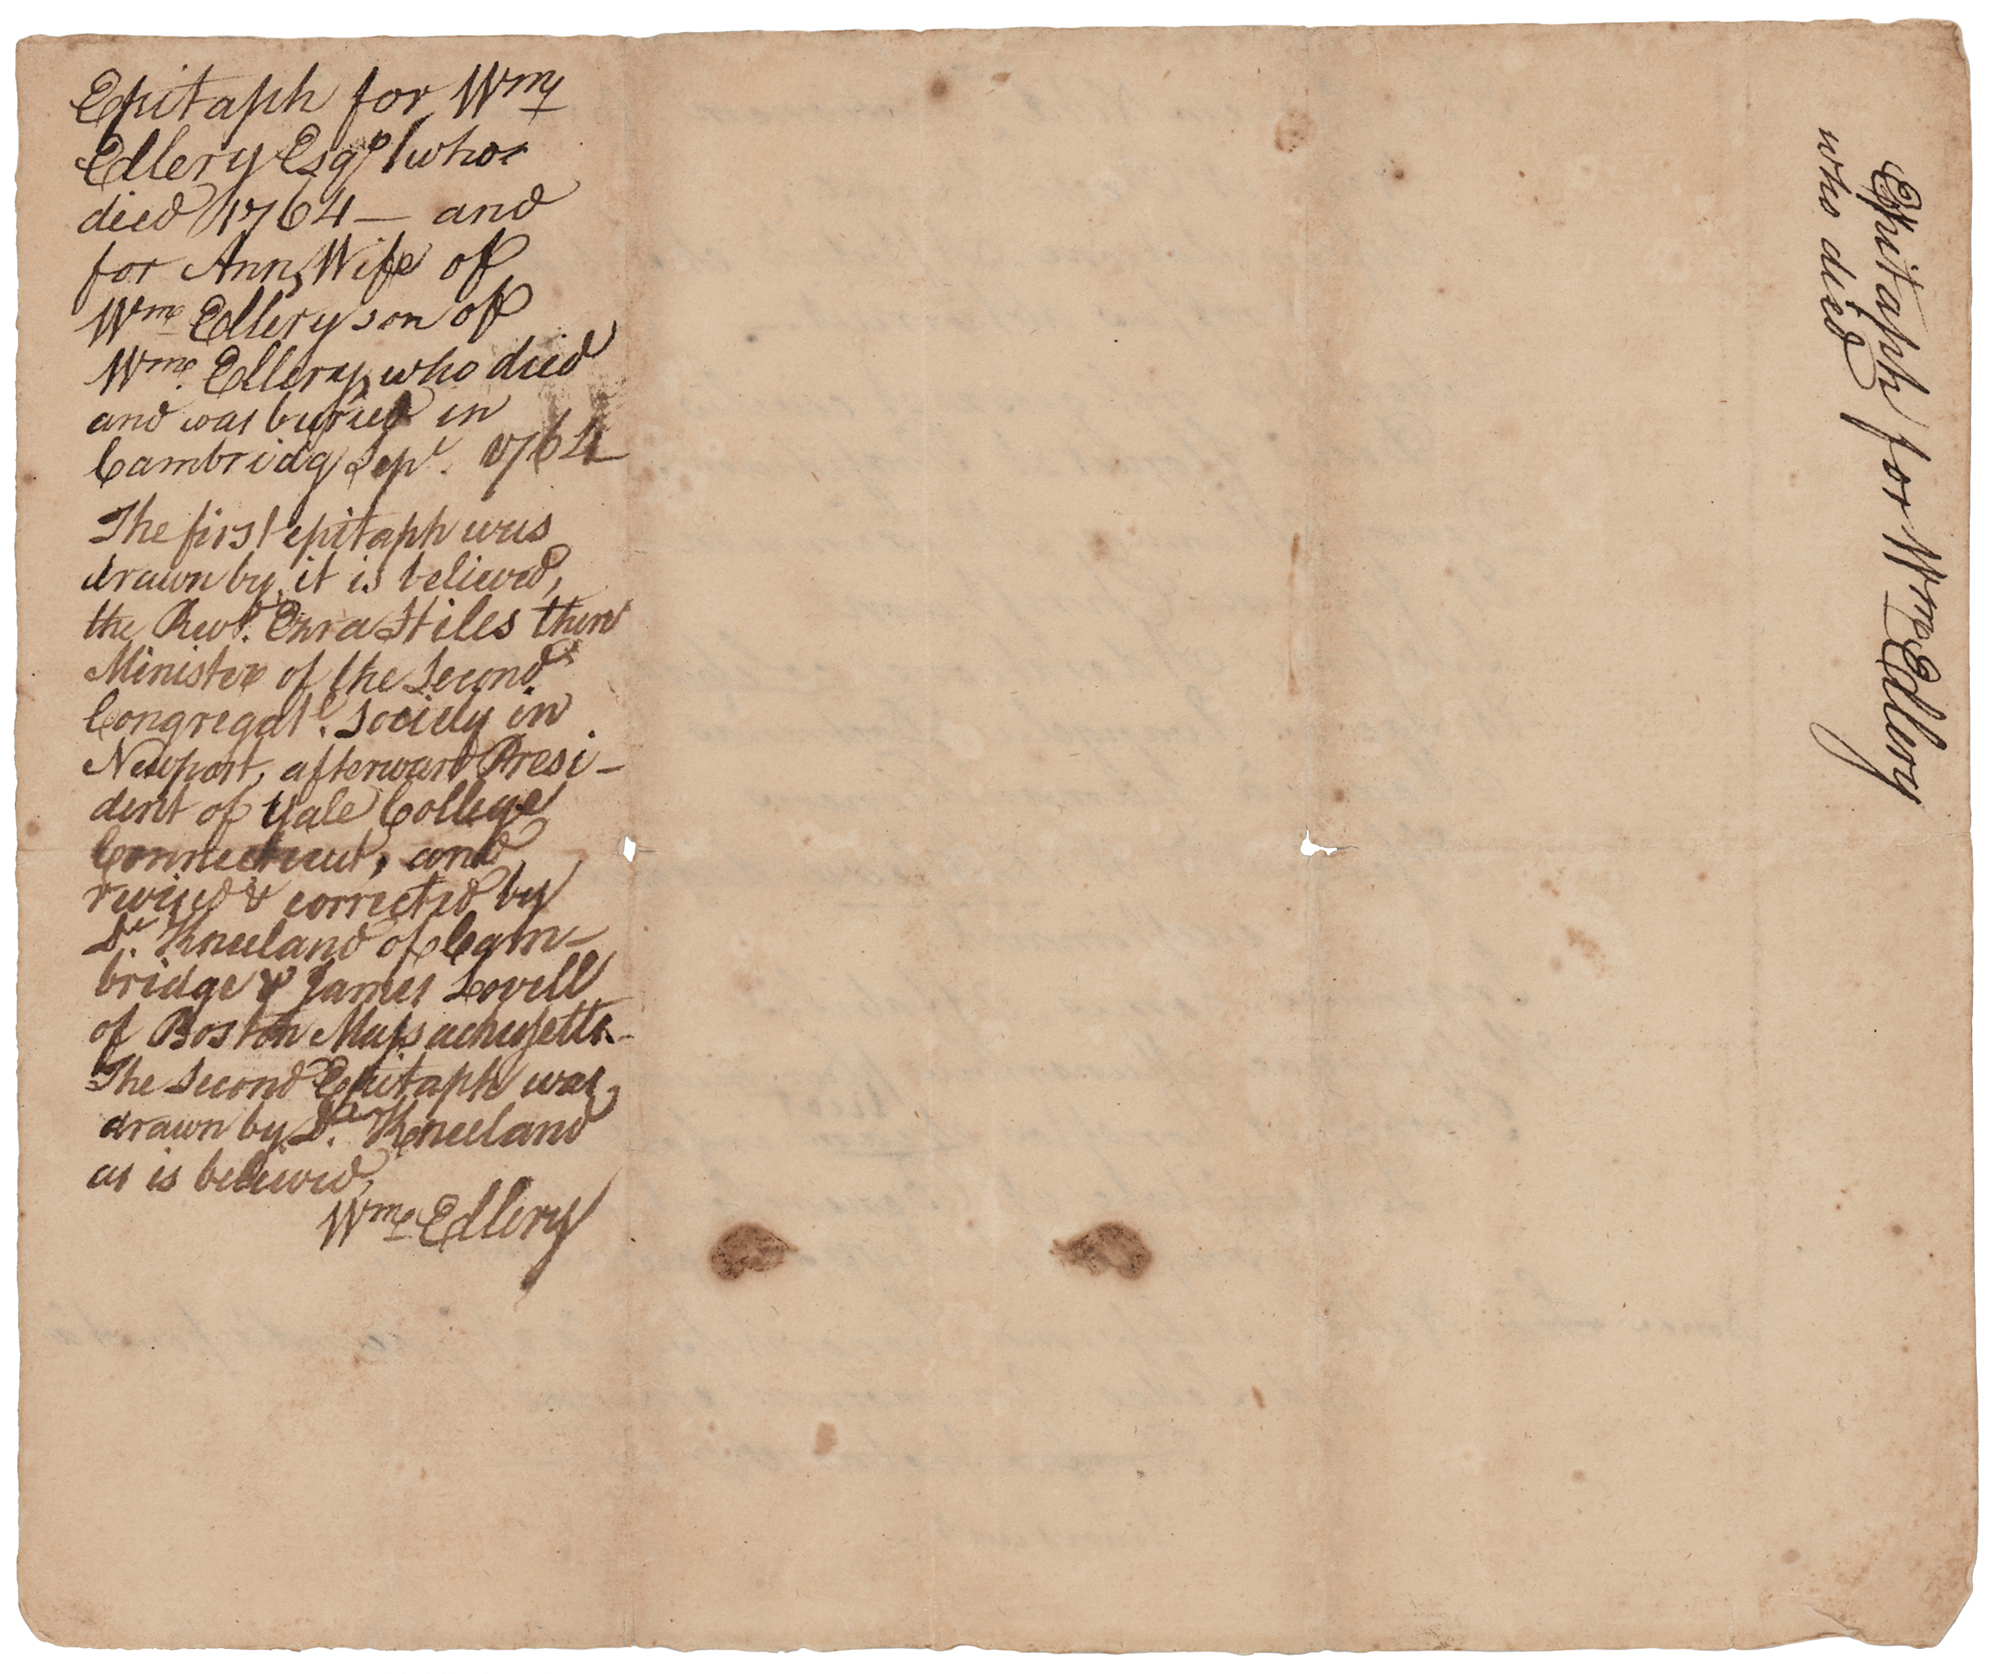 Epitaph for Wm
Ellery Esqr who
died 1764 — and
for Ann, Wife of
Wm Ellery son of
Wm. Ellery, who died
and was buried in
Cambridg Sepr. 1764
The first epitaph was
drawn by, it is believed,
the Revd. Ezra Stiles then
Minister of the Second
Congregatl. Society in
Newport, afterward Presi-
dent of Yale College
Connecticut, and
revised & corrected by
Dr. Kneeland of Cam-
bridge & James Lovell
of Boston Massachusetts.
The Second Epitaph was
drawn by Dr. Kneeland
as is believed,
Wm Ellery
Epitaph for Wm Ellery
who died